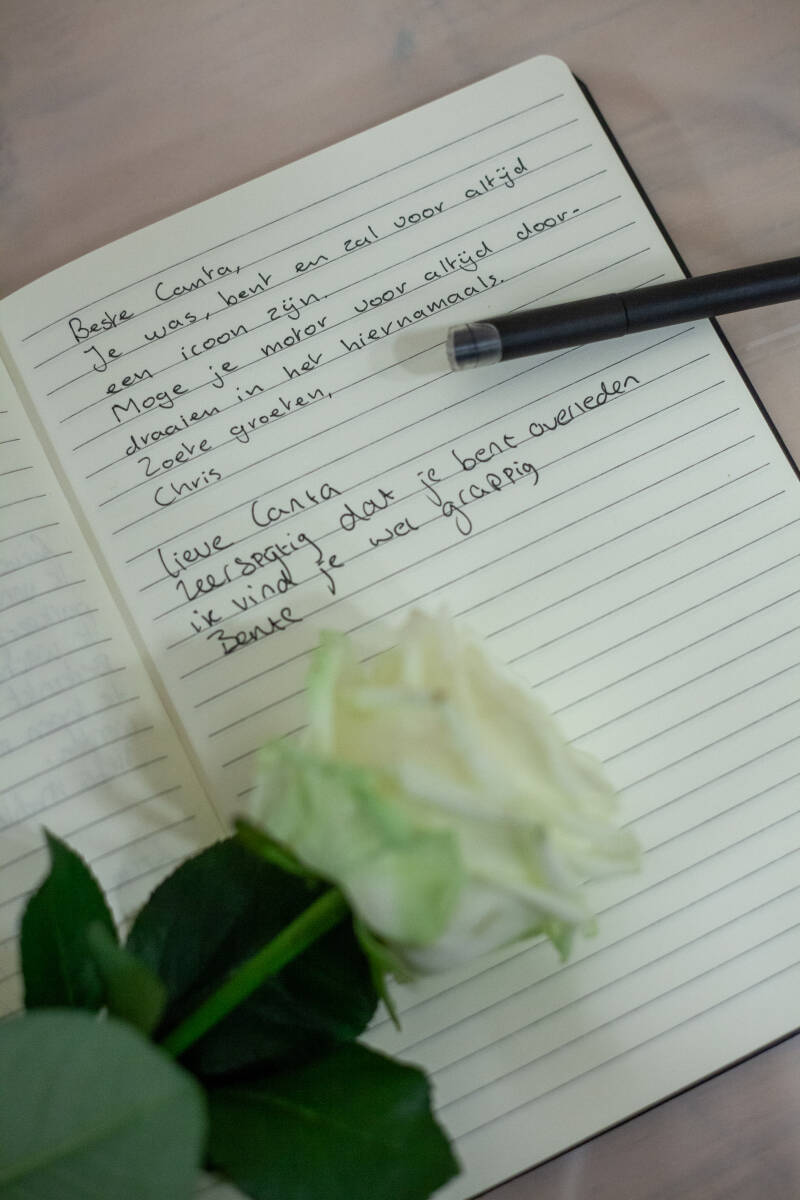 Beste Canta,
Je was, bent en zal voor altijd
een icoon zijn.
Moge je motor voor altijd door-
draaien in het hiernamaals.
Zoete groeten,
Chris
Lieve Canta
zeerspijtig dat je bent overleden
ik vind je wel grappig
Bente